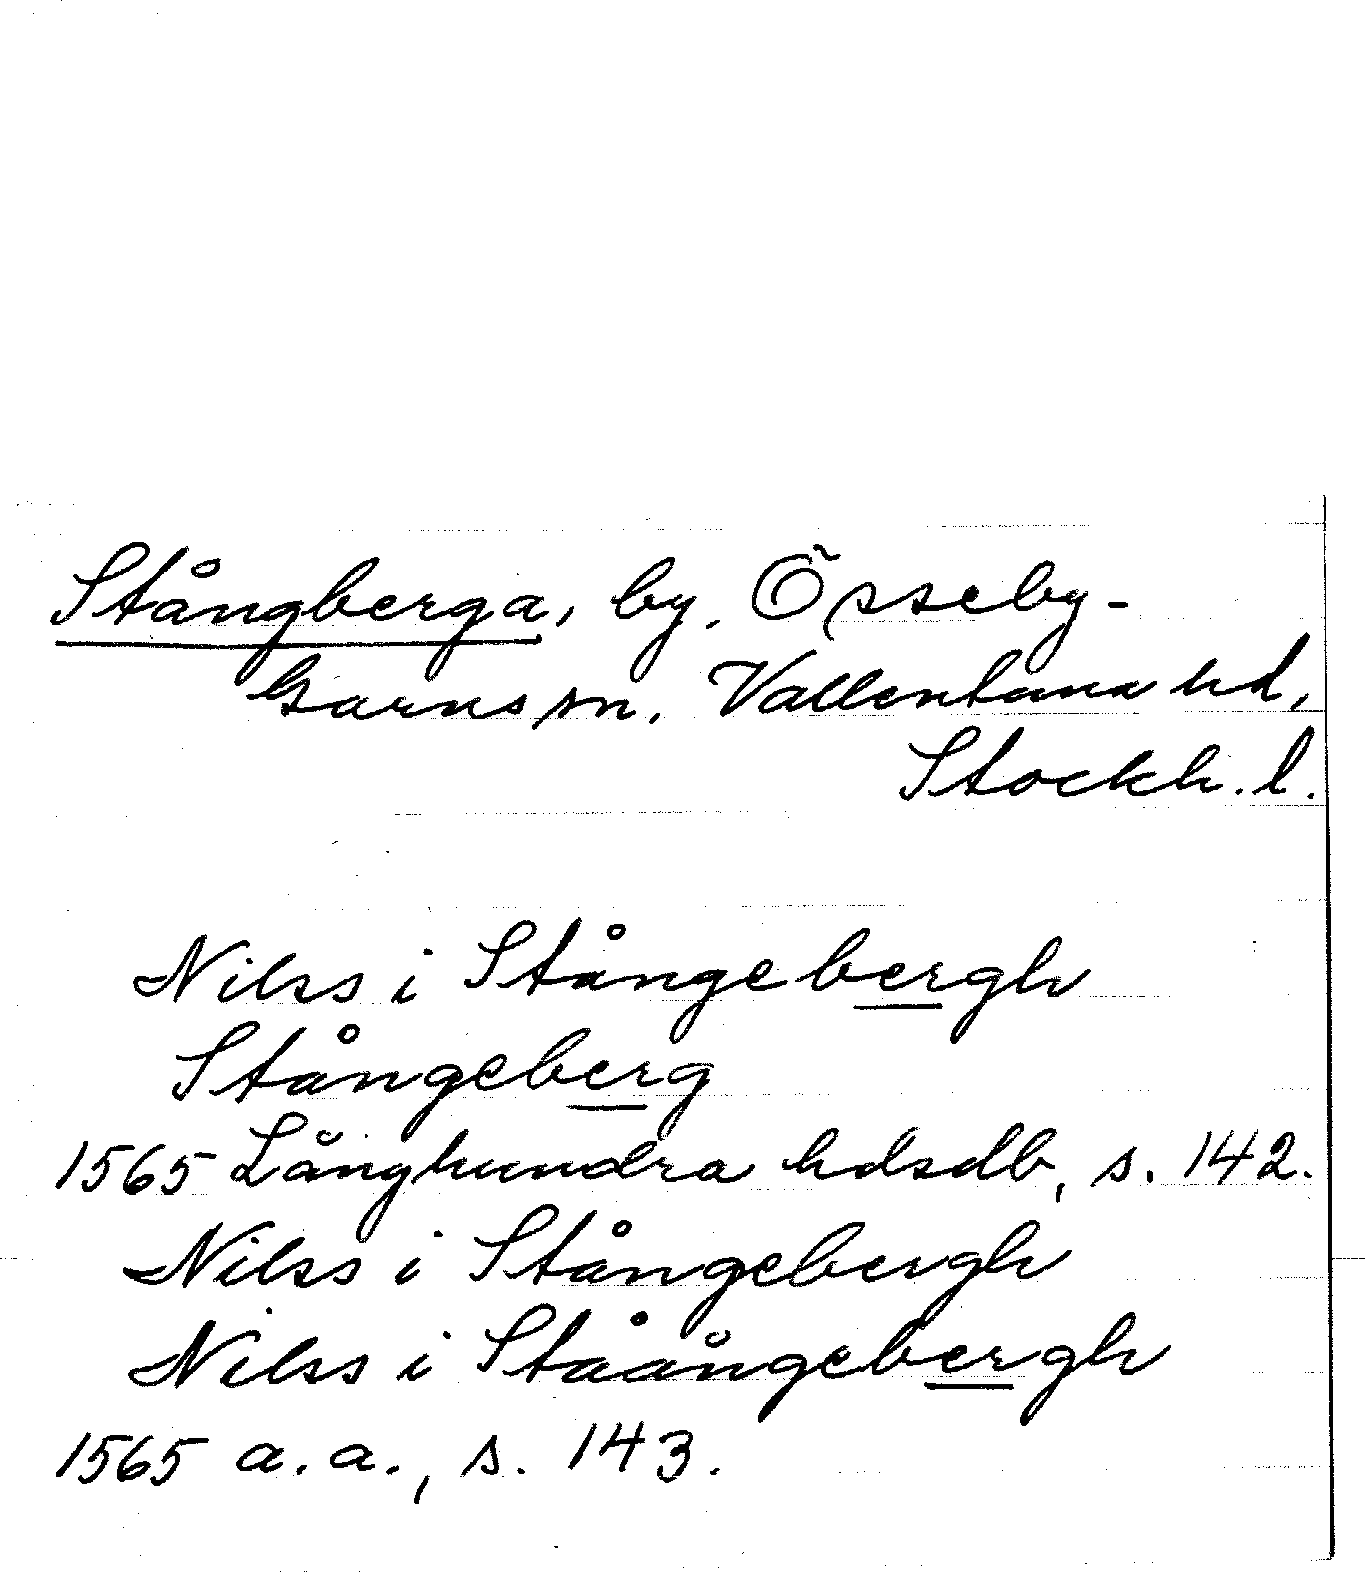 Stångberga, by, Össeby-
Garns sn. Vallentuna hd,
Stockh. l.
Nilss i Stångebergh
Stångeberg
1565 Långhundra hdsdb, s. 142.
Nilss i Stångebergh
Nilss i Stäångebergh
1565 a.a., s. 143.